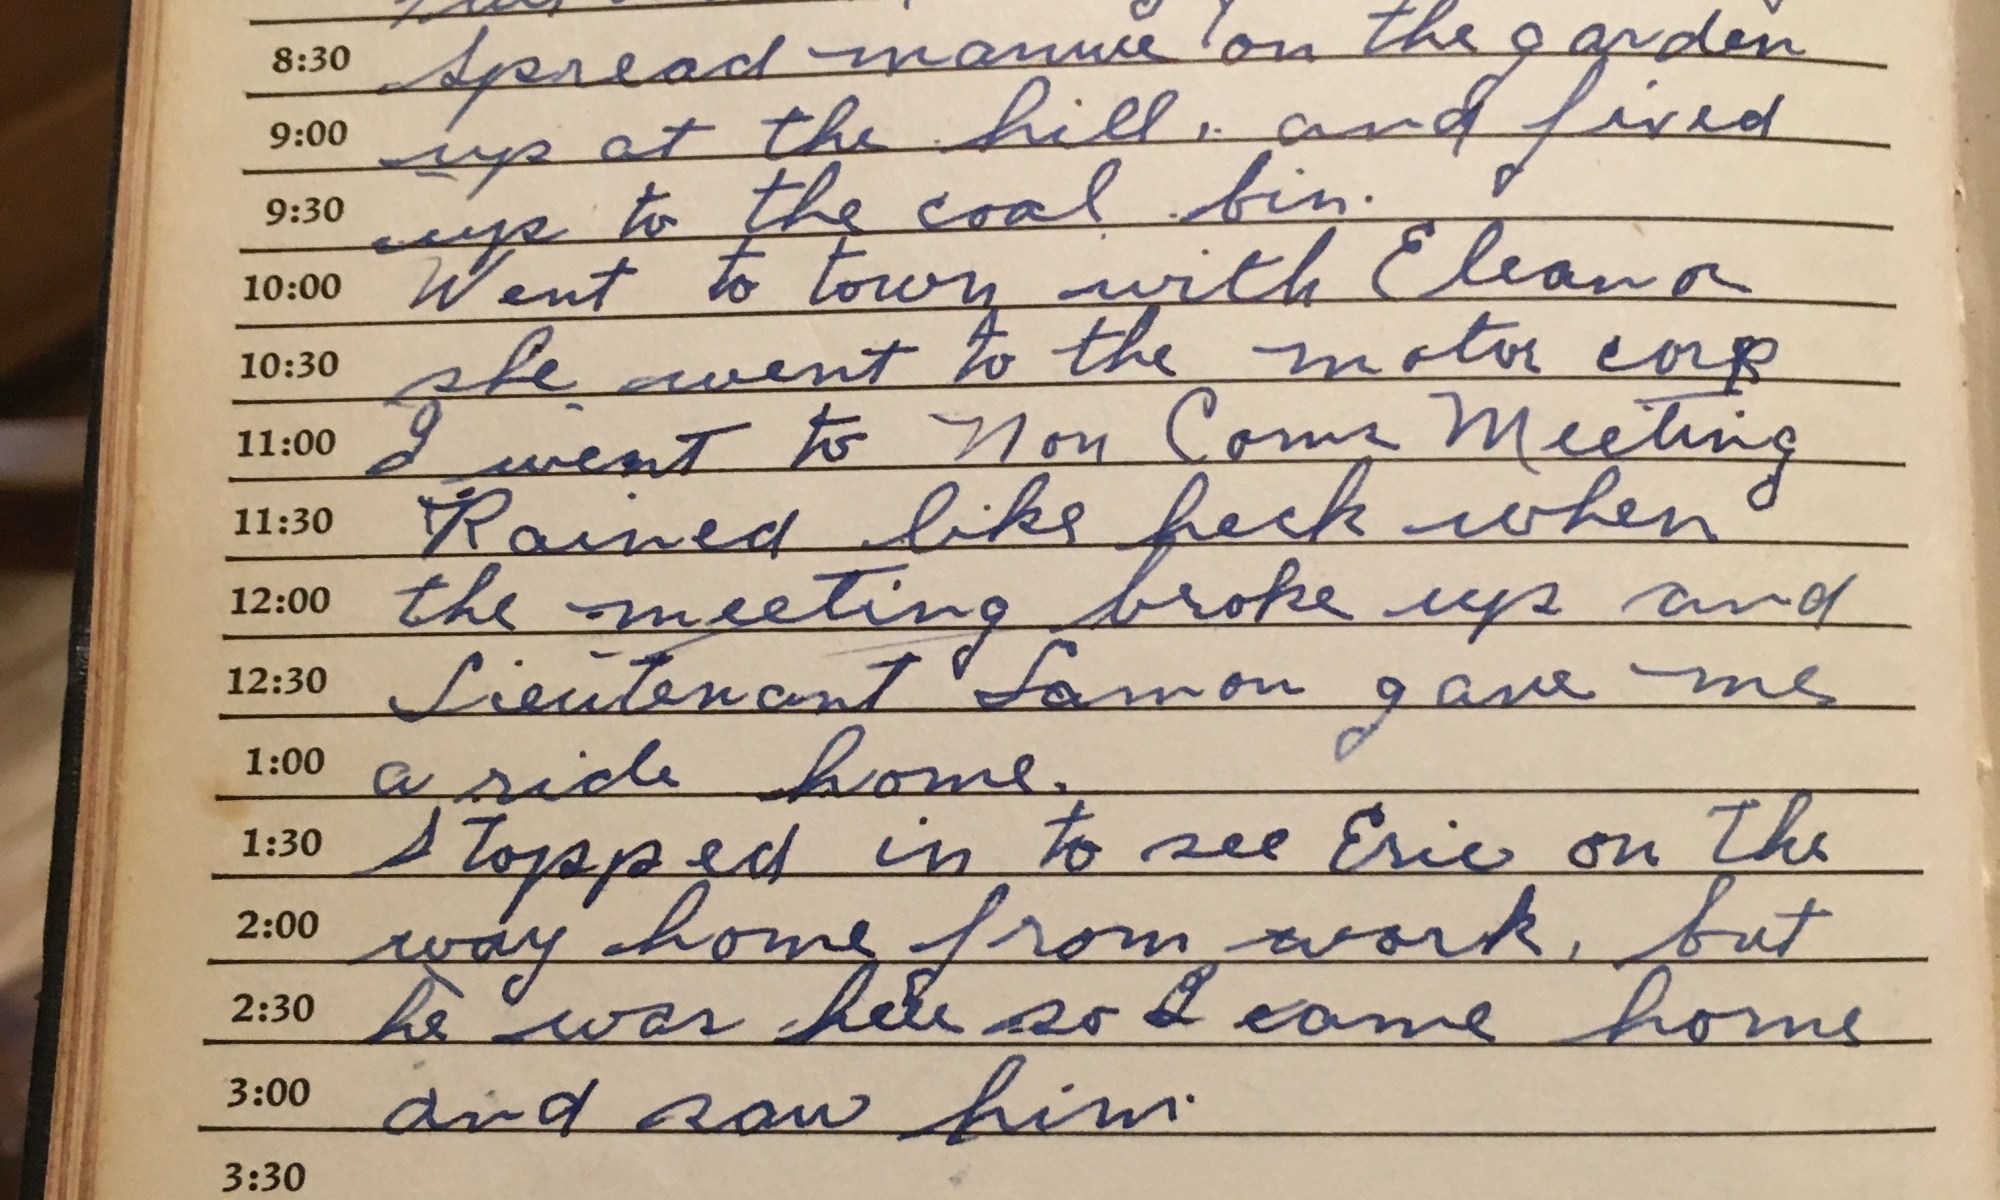 8:30 Spread manure on the garden
9:00 up at the hill, and fixed
9:30 up to the coal bin.
10:00 Went to town with Eleanor
10:30 she went to the motor corp
11:00 I went to Non Coms Meeting
11:30 Rained like heck when
12:00 the meeting broke up and
12:30 Lieutenant Lamon gave me
1:00 a ride home.
1:30 Stopped in to see Eric on the
2:00 way home from work, but
2:30 he was here so I came home
3:00 and saw him.
3:30